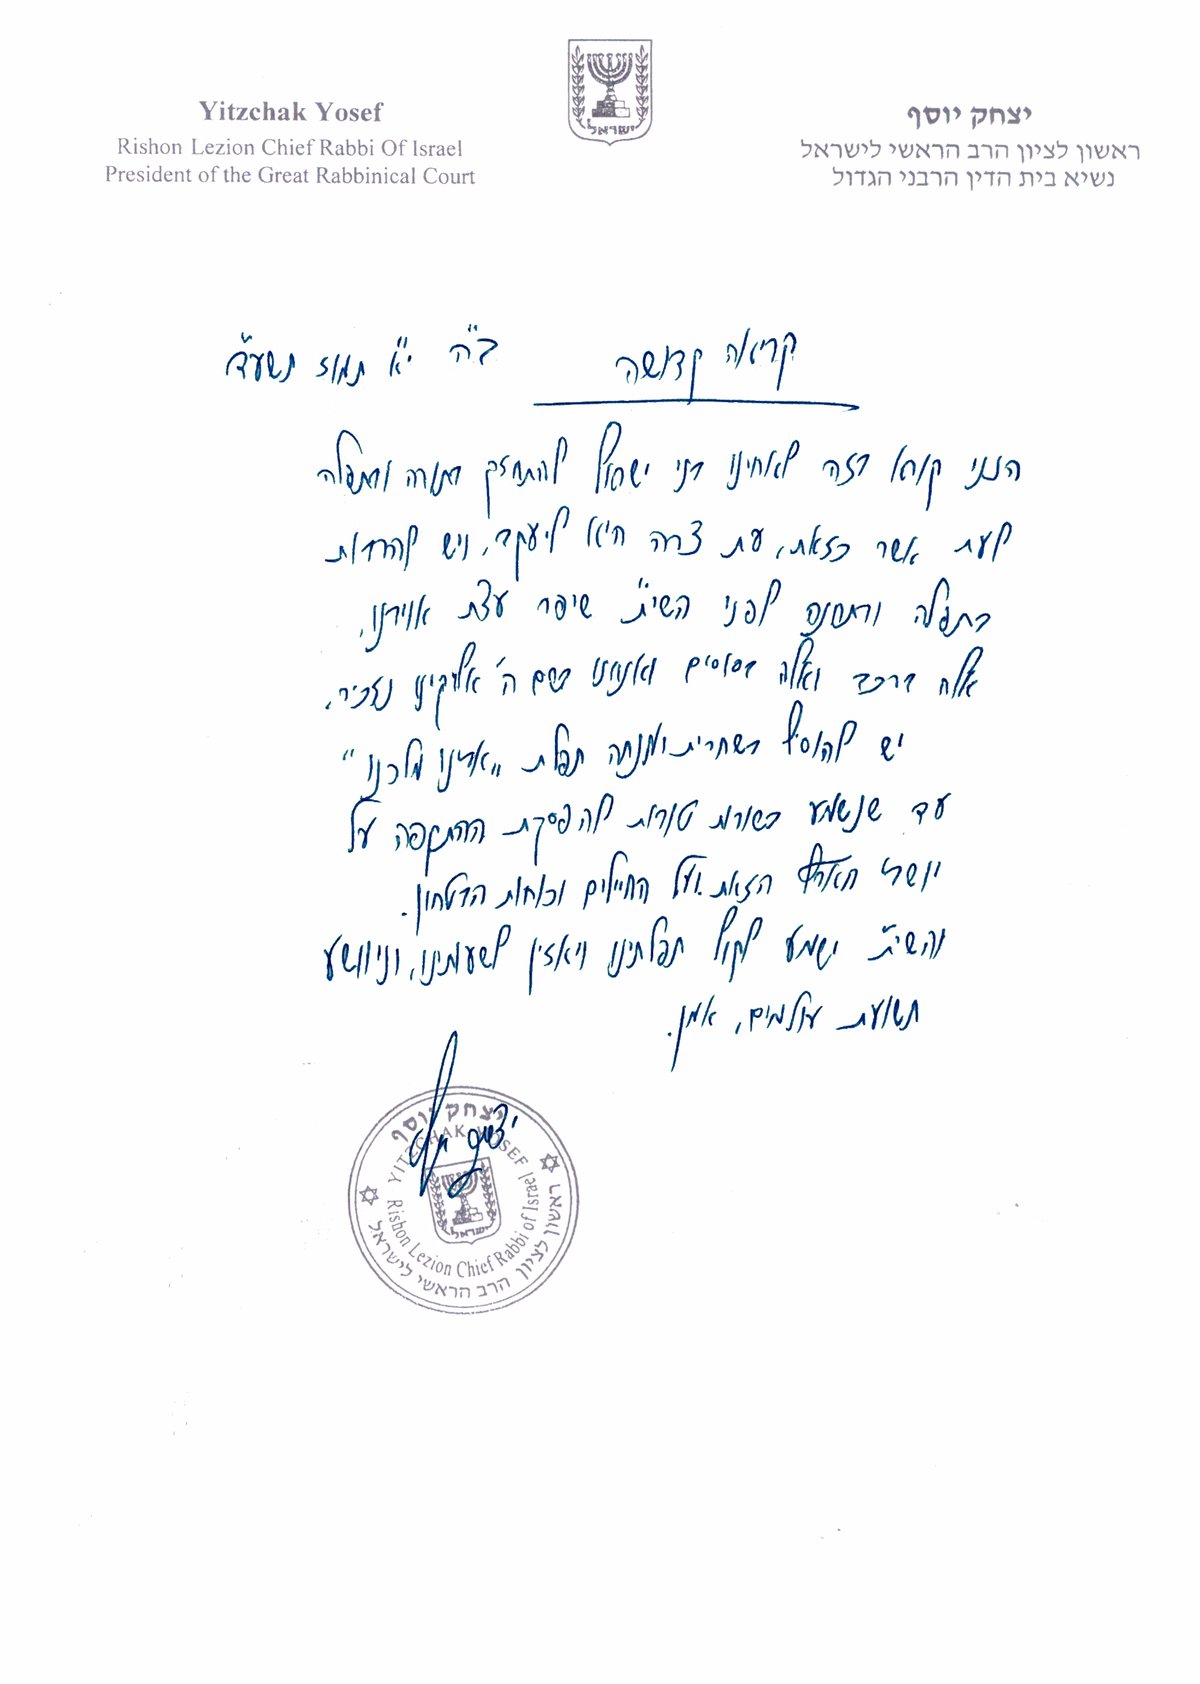 Yitzchak Yosef
Rishon Lezion Chief Rabbi Of Israel
President of the Great Rabbinical Court
ישראל
יצחק יוסף
ראשון לציון הרב הראשי לישראל
נשיא בית הדין הרבני הגדול
ב"ה י"א תמוז תשע"ד
קריאה קדושה
הנני קורא בזה לאחינו בני ישראל להתחזק בתורה ובתפלה
לעת אשר כזאת, עת צרה היא ליעקב, ויש להרבות
בתפלה ובתחנה לפני השי"ת שיפר עצת אויבנו,
אלה ברכב ואלה בסוסים ואנחנו בשם ה' אלקינו נזכיר.
יש להוסיף בשחרית ומנחה תפלת "אבינו מלכנו"
עד שנשמע בשורות טובות להפסקת ההתקפה על
יושבי הארץ הזאת. ועל החיילים וכוחות הבטחון.
והשי"ת ישמע לקול תפלתינו ויאזין לשועתינו, וניוושע
תשועת עולמים, אמן.
יצחק יוסף
יצחק יוסף
YITZCHAK YOSEF
Rishon Lezion Chief Rabbi of Israel
ראשון לציון הרב הראשי לישראל
ישראל